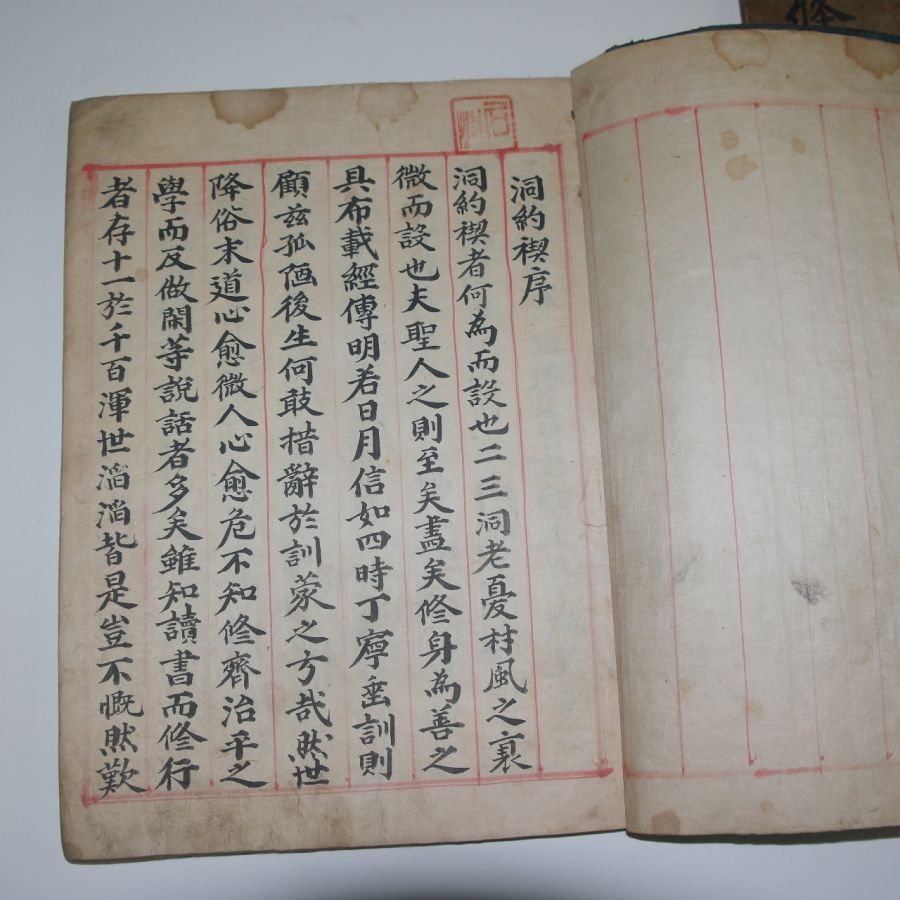 洞約禊序
洞約禊者何為而設也二三洞老憂村風之衰
微而設也夫聖人之則至矣盡矣修身為善之
具布載經傳明若日月信如四時丁寧垂訓則
顧茲孤陋後生何敢措辭於訓蒙之方哉然世
降俗末道心愈微人心愈危不知修齊治平之
學而反做閑等說話者多矣雖知讀書而修行
者存十一於千百渾世滔滔皆是豈不慨然歎